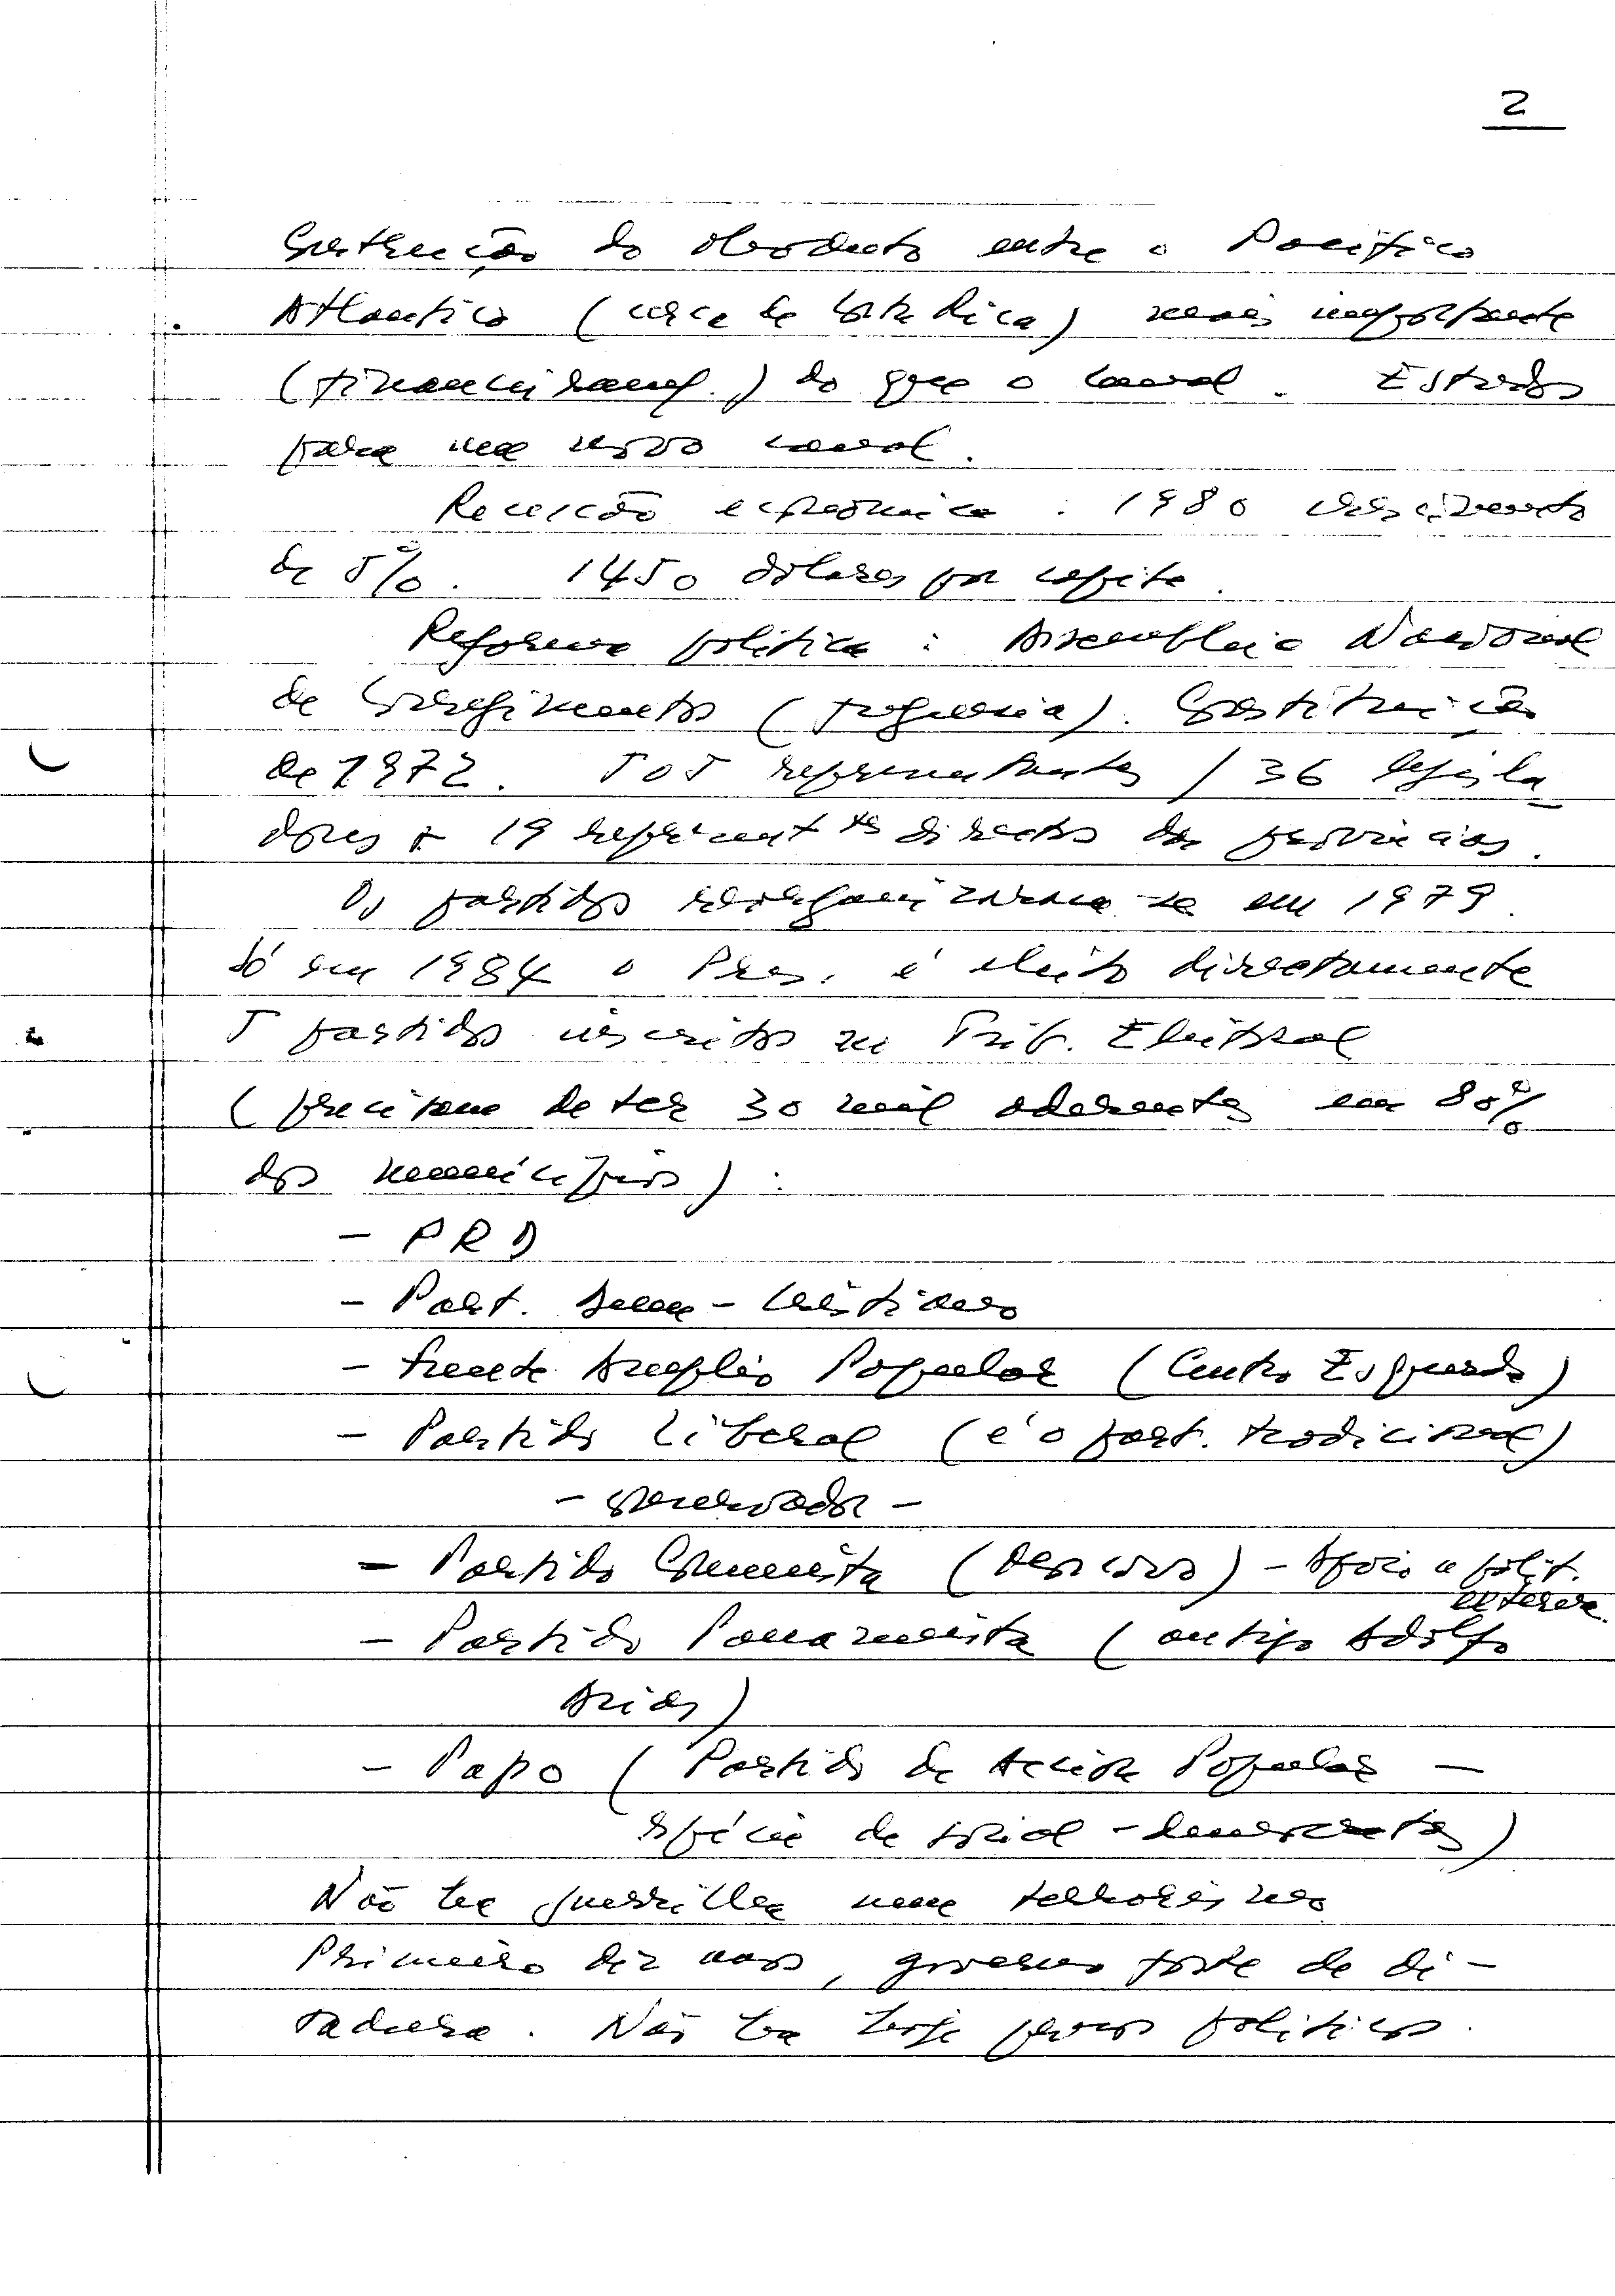 2
Construção do oleoducto entre o Pacífico
Atlantico (cerca de Costa Rica) mais importante
(financeiramt.) do que o canal. Estudos
para um novo canal.
Recessão económica: 1980 crescimento
de 5%. 1450 dólares por capita.
Reforma politica: Assembleia Nacional
de Corregimentos (freguesia). Constituição
de 1972. 505 representantes / 36 legisla
dores + 19 represent tes directos das provincias.
Os partidos reorganizaram-se em 1979.
Só em 1984 o Pres. é eleito directamente
5 partidos inscritos no Trib. Eleitoral
(precisam de ter 30 mil aderentes em 80%
dos municípios):
- PRD
- Part. Dem-Cristiano
- Frente Amplio Popular (Centro Esquerda)
- Partido Liberal (é o part. tradicional)
- conservador -
- Partido Comunista ( ) - Apoio a polit.
externa.
- Partido Panamenista (antigo Adolfo
Arias)
- Papo (Partido de Acción Popular -
espécie de social-democratas)
Não há guerrilha nem terrorismo
Primeiro dez anos, governo forte de di-
tadura. Não há hoje presos politicos.